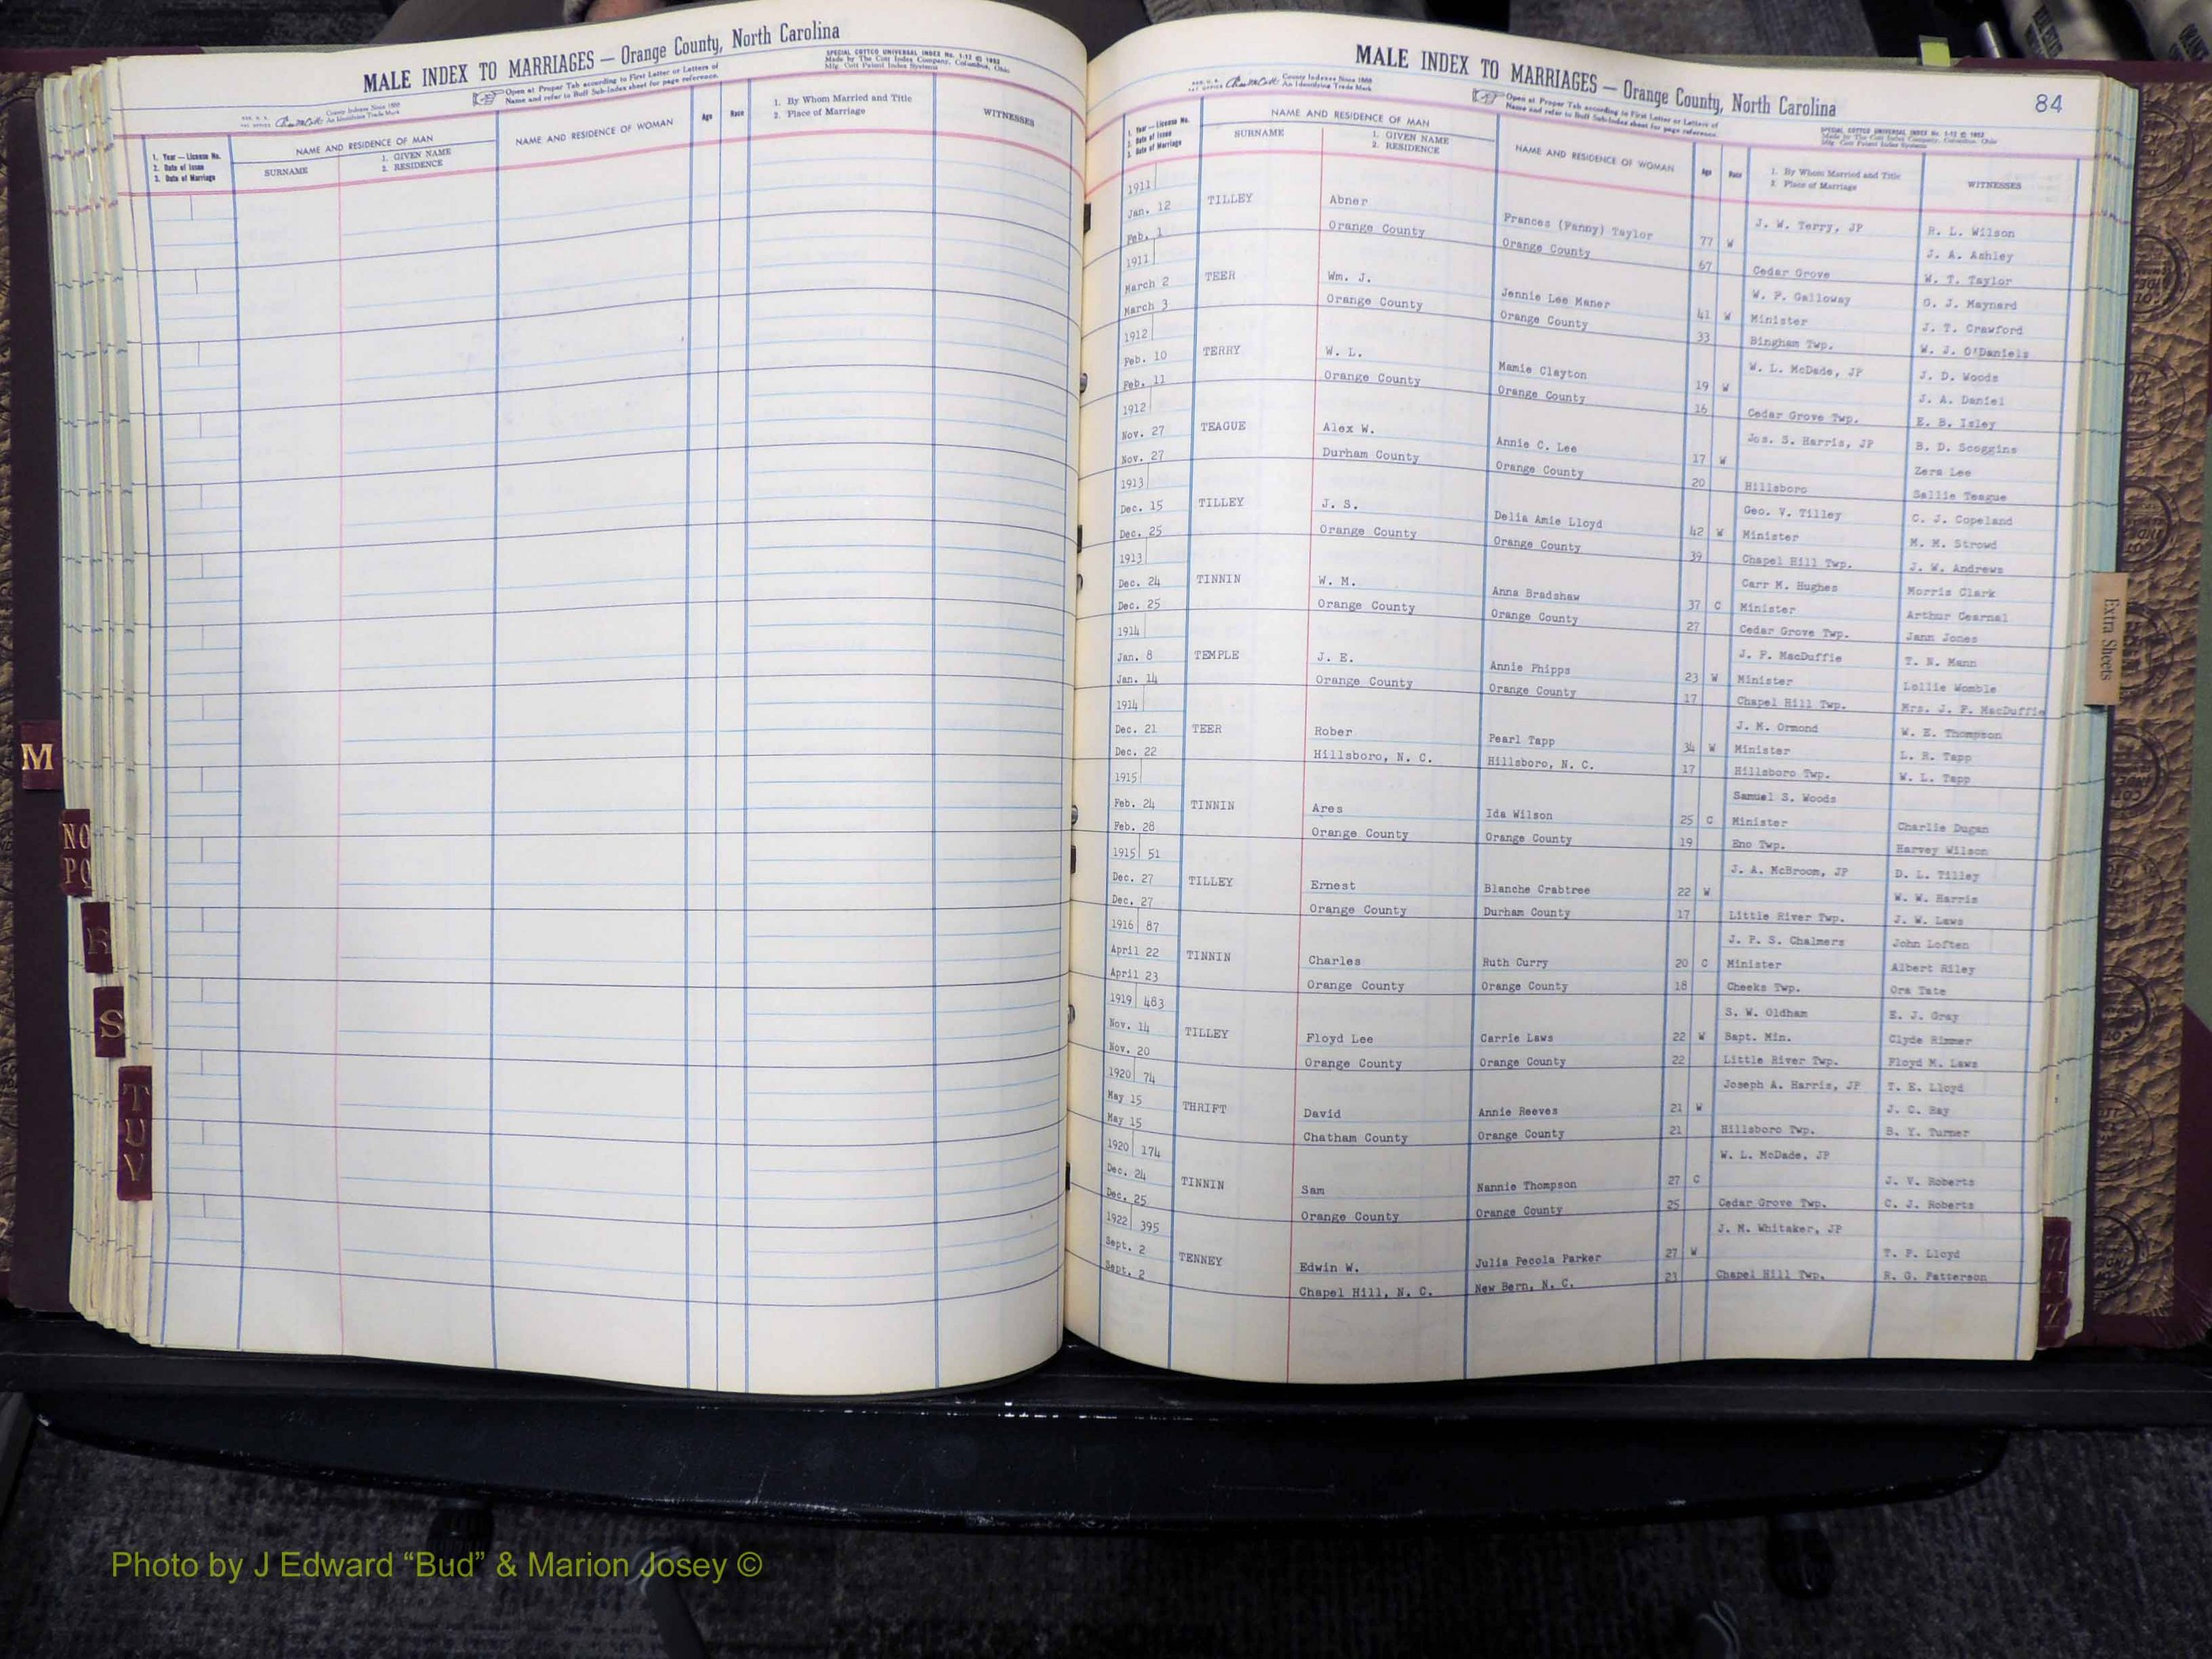 MALE INDEX TO MARRIAGES — Orange County, North Carolina
Open at Proper Tab according to First Letter or Letters of
Name and refer to Buff Sub-Index sheet for page reference.
SPECIAL COTTCO UNIVERSAL INDEX No. 1-12 © 1952
Made by The Cott Index Company, Columbus, Ohio
Mfg. Cott Patent Index Systems
County Indexes Since 1888
An Identifying Trade Mark
1. Year — License No.
2. Date of Issue
3. Date of Marriage
NAME AND RESIDENCE OF MAN
SURNAME
1. GIVEN NAME
2. RESIDENCE
NAME AND RESIDENCE OF WOMAN
Age
Race
1. By Whom Married and Title
2. Place of Marriage
WITNESSES
M
NO
PQ
R
S
T
U
V
MALE INDEX TO MARRIAGES — Orange County, North Carolina
84
County Indexes Since 1888
An Identifying Trade Mark
Open at Proper Tab according to First Letter or Letters of
Name and refer to Buff Sub-Index sheet for page reference.
SPECIAL COTTCO UNIVERSAL INDEX No. 1-12 © 1952
Made by The Cott Index Company, Columbus, Ohio
Mfg. Cott Patent Index Systems
1. Year — License No.
2. Date of Issue
3. Date of Marriage
NAME AND RESIDENCE OF MAN
SURNAME
1. GIVEN NAME
2. RESIDENCE
NAME AND RESIDENCE OF WOMAN
Age
Race
1. By Whom Married and Title
2. Place of Marriage
WITNESSES
1911 J. W. Terry, JP R. L. Wilson
Jan. 12 TILLEY Abner Frances (Fanny) Taylor 77 W J. A. Ashley
Feb. 1 Orange County Orange County 67 Cedar Grove W. T. Taylor
1911 W. P. Galloway G. J. Maynard
March 2 TEER Wm. J. Jennie Lee Maner 41 W Minister J. T. Crawford
March 3 Orange County Orange County 33 Bingham Twp. W. J. O'Daniels
1912 W. L. McDade, JP J. D. Woods
Feb. 10 TERRY W. L. Mamie Clayton 19 W J. A. Daniel
Feb. 11 Orange County Orange County 16 Cedar Grove Twp. E. B. Isley
1912 Jos. S. Harris, JP B. D. Scoggins
Nov. 27 TEAGUE Alex W. Annie C. Lee 17 W Zera Lee
Nov. 27 Durham County Orange County 20 Hillsboro Sallie Teague
1913 Geo. V. Tilley C. J. Copeland
Dec. 15 TILLEY J. S. Delia Amie Lloyd 42 W Minister M. M. Strowd
Dec. 25 Orange County Orange County 39 Chapel Hill Twp. J. W. Andrews
1913 Carr M. Hughes Morris Clark
Dec. 24 TINNIN W. M. Anna Bradshaw 37 C Minister Arthur Cearnal
Dec. 25 Orange County Orange County 27 Cedar Grove Twp. Jann Jones
1914 J. P. MacDuffie T. N. Mann
Jan. 8 TEMPLE J. E. Annie Phipps 23 W Minister Lollie Womble
Jan. 14 Orange County Orange County 17 Chapel Hill Twp. Mrs. J. P. MacDuffie
1914 J. M. Ormond W. E. Thompson
Dec. 21 TEER Rober Pearl Tapp 34 W Minister L. R. Tapp
Dec. 22 Hillsboro, N. C. Hillsboro, N. C. 17 Hillsboro Twp. W. L. Tapp
1915 Samuel S. Woods
Feb. 24 TINNIN Ares Ida Wilson 25 C Minister Charlie Dugan
Feb. 28 Orange County Orange County 19 Eno Twp. Harvey Wilson
1915 51 J. A. McBroom, JP D. L. Tilley
Dec. 27 TILLEY Ernest Blanche Crabtree 22 W W. W. Harris
Dec. 27 Orange County Durham County 17 Little River Twp. J. W. Laws
1916 87 J. P. S. Chalmers John Loften
April 22 TINNIN Charles Ruth Curry 20 C Minister Albert Riley
April 23 Orange County Orange County 18 Cheeks Twp. Ora Tate
1919 483 S. W. Oldham E. J. Gray
Nov. 14 TILLEY Floyd Lee Carrie Laws 22 W Bapt. Min. Clyde Rimmer
Nov. 20 Orange County Orange County 22 Little River Twp. Floyd M. Laws
1920 74 Joseph A. Harris, JP T. E. Lloyd
May 15 THRIFT David Annie Reeves 21 W J. C. Ray
May 15 Chatham County Orange County 21 Hillsboro Twp. B. Y. Turner
1920 174 W. L. McDade, JP
Dec. 24 TINNIN Sam Nannie Thompson 27 C J. V. Roberts
Dec. 25 Orange County Orange County 25 Cedar Grove Twp. C. J. Roberts
1922 395 J. M. Whitaker, JP
Sept. 2 TENNEY Edwin W. Julia Pecola Parker 27 W T. F. Lloyd
Sept. 2 Chapel Hill, N. C. New Bern, N. C. 23 Chapel Hill Twp. R. G. Patterson
Extra Sheets
Photo by J Edward “Bud” & Marion Josey ©